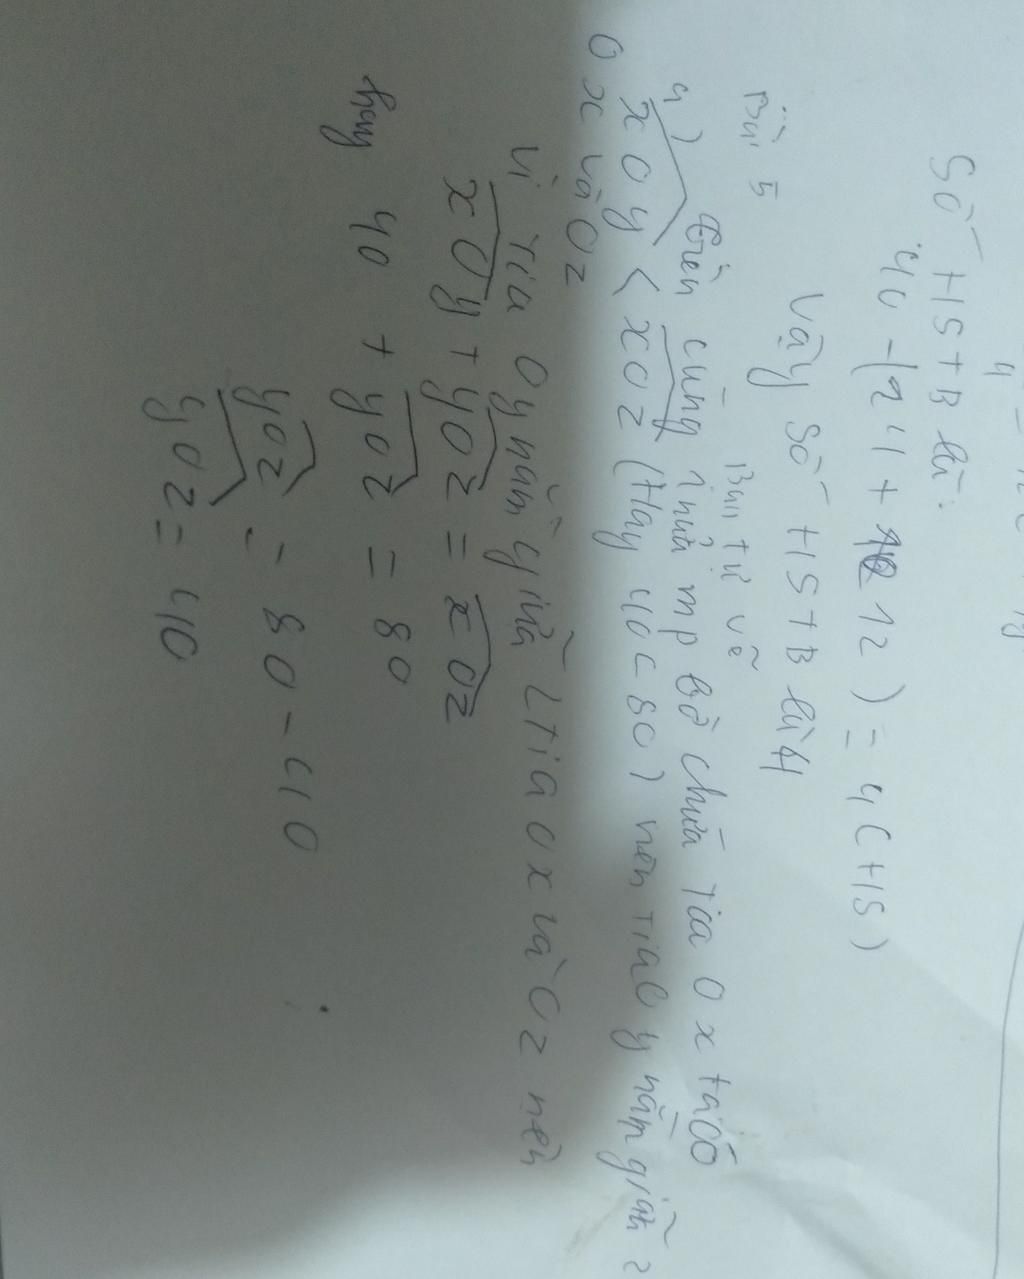 Số HS TB là:
40 - (24 + 12) = 4 (HS)
Vậy số HS TB là 4
Bài 5
Bạn tự vẽ
a) trên cùng 1 nửa mp bờ chứa tia Ox ta có
xOy < xOz (Hay 40 < 80) nên tia Oy nằm giữa 2
Ox và Oz
Vì tia Oy nằm giữa 2 tia Ox và Oz nên
xOy + yOz = xOz
hay 40 + yOz = 80
yOz = 80 - 40
yOz = 40